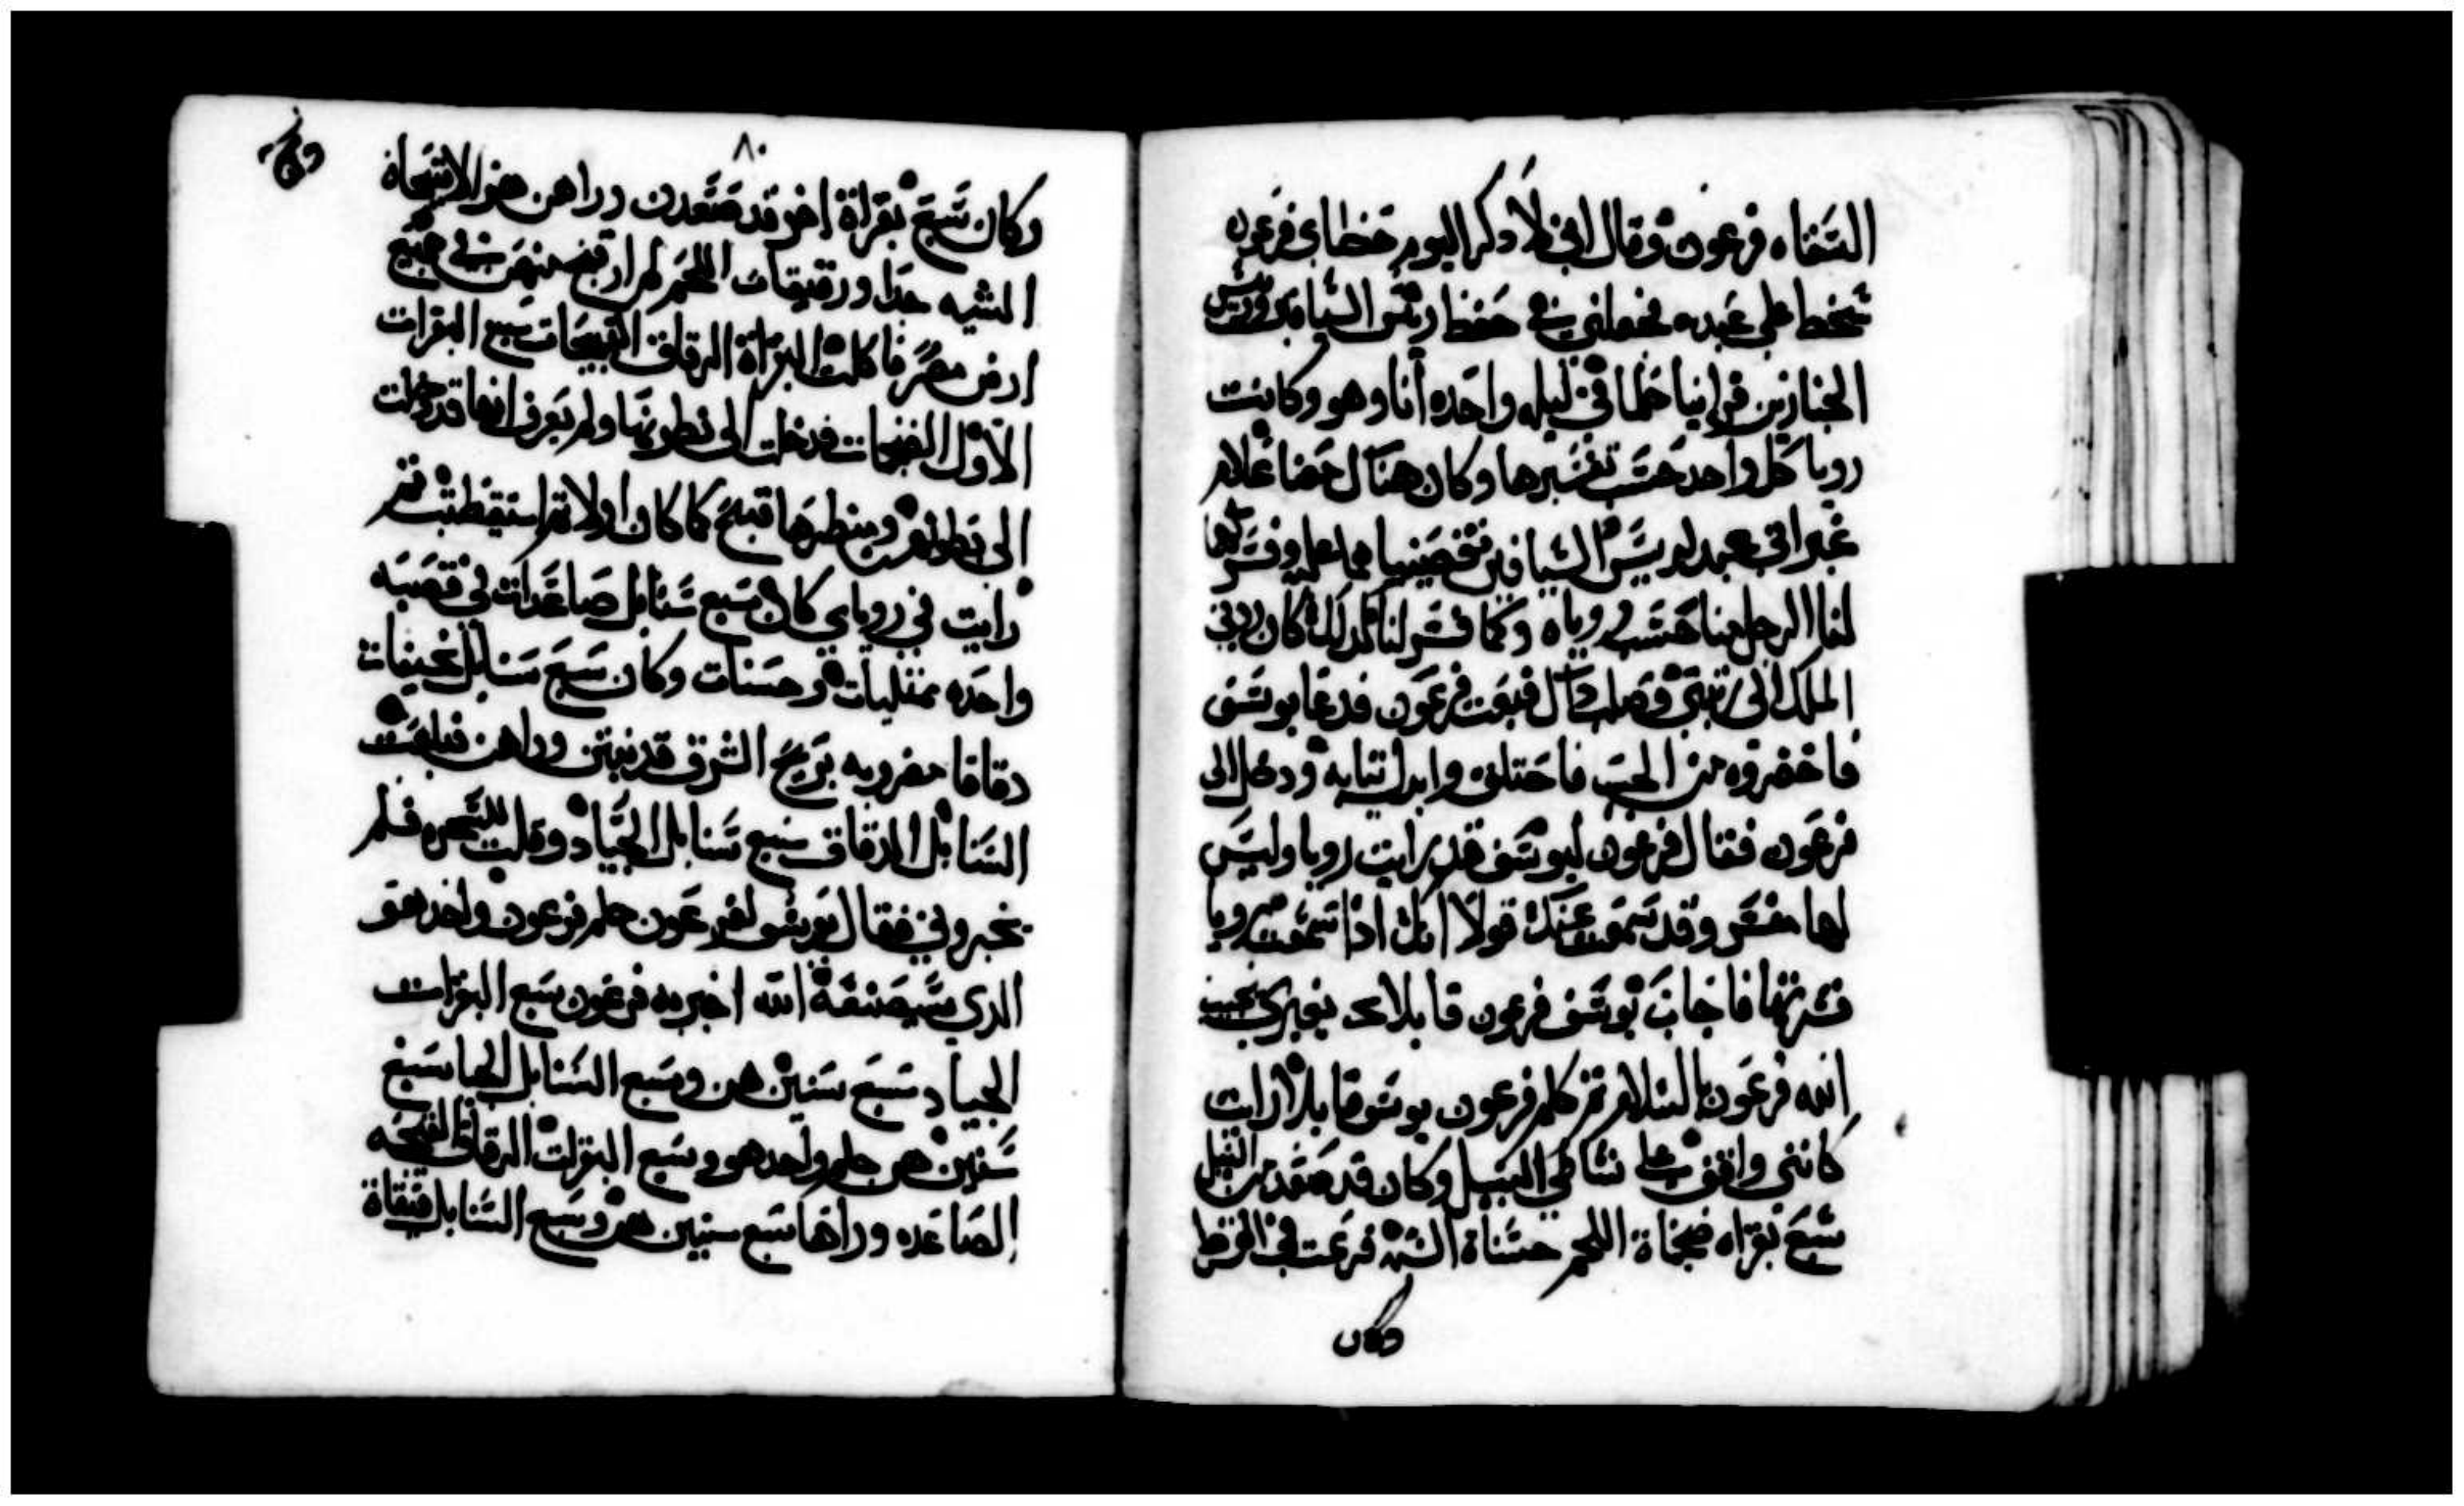 السقاه فرعون وقال اني لاذكر اليوم خطاي فرعون
سخط علي عبده فجعلني في حفظ ريس السيافين وريس
الخبازين فراينا حلما في ليله واحده أنا وهو وكانت
رويا كل واحد حسب تفسيرها وكان هناك معنا غلام
عبراني عبد لريس السيافين فقصينا عليه وفسرها
لنا الرجل منا حسب روياه وكما فسر لنا كذلك كان ردني
الملك الي رتبتي وصلب ذاك فبعت فرعون فدعا يوسف
فاحضروه من الحبس فاحتلق وابدل تيابه ودخل الي
فرعون فقال فرعون ليوسف قد رايت رويا وليس
لها مفسر وقد سمعت عنك قولا انك اذا سمعت رويا
فسرتها فاجاب يوسف فرعون قايلا بغيري يجيب
الله فرعون بالسلام تم كلم فرعون يوسف قايلا رايت
كانني واقف علي شاطي النيل وكان قد صعد من النيل
سبع بقراه ضخماة اللحم حسناة فرعت في القرط
وكان
٨٠
وكان سبع بقراة اخر قد صعدن وراهن هن الاسمجاة
المشيه جدا ورقيقات اللحم لم ار اقبح منهن في جميع
ارض مصر فاكلت البقراة الرقاق القبيحات سبع البقرات
الاول الضخمات فدخلت الي بطونها ولم يعرف انها قد دخلت
الي بطونهن ومنظرها قبيح كما كان اولا تم استيقظت تم
رايت في روياي كان سبع سنابل صاعدات في قصبه
واحده ممتليات وحسنات وكان سبع سنابل نحيفات
دقاقا مضروبه بريح الشرق قد نبتن وراهن فبلعت
السنابل الدقاق سبع سنابل الجياد وقلت للسحره فلم
يخبروني فقال يوسف لفرعون حلم فرعون واحد هو
الدي سيصنعه الله اخبر به فرعون سبع البقرات
الجياد سبع سنين هن وسبع السنابل الجيا سبع
سنين هن حلم واحد هو وسبع البقرات الرقاق القبيحه
الصاعده وراها سبع سنين هن وسبع السنابل